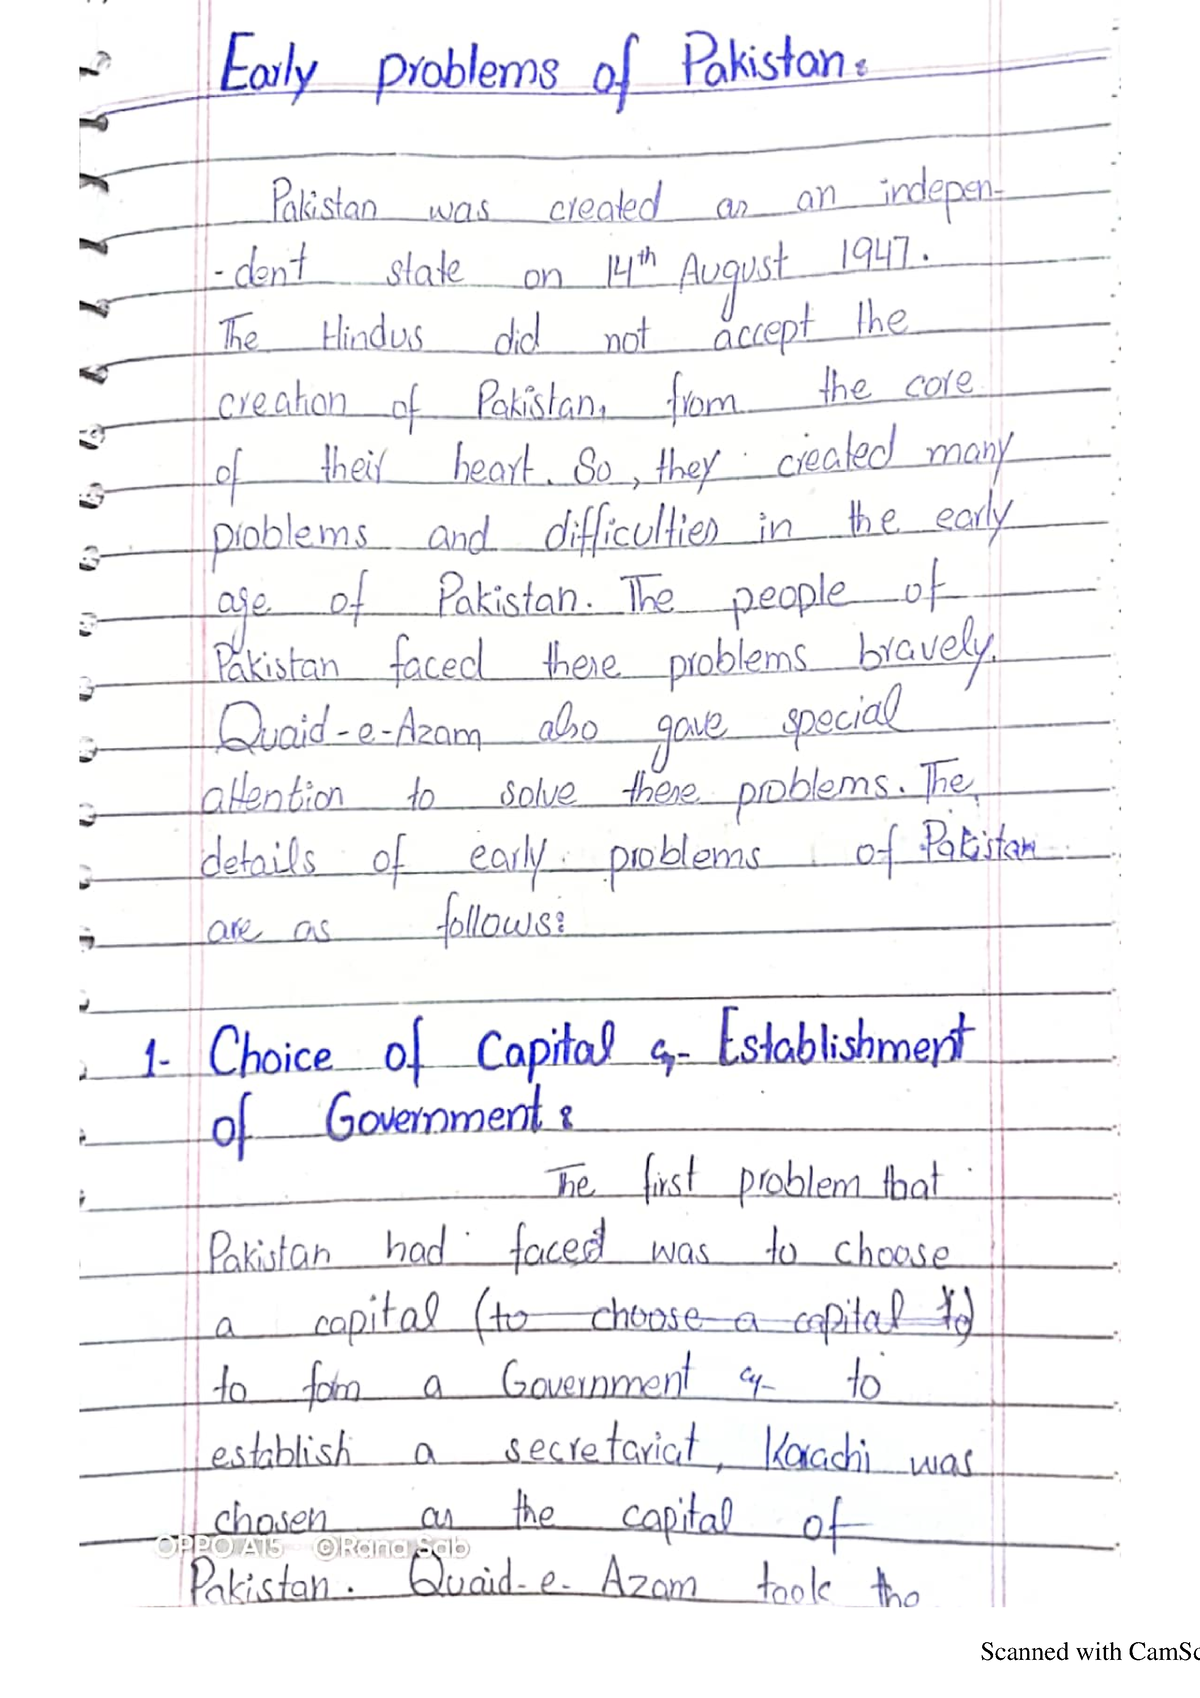 Early problems of Pakistan:
Pakistan was created as an indepen-
-dent state on 14th August 1947.
The Hindus did not accept the
creation of Pakistan, from the core
of their heart. So, they created many
problems and difficulties in the early
age of Pakistan. The people of
Pakistan faced these problems bravely.
Quaid-e-Azam also gave special
attention to solve these problems. The
details of early problems of Pakistan
are as follows:
1- Choice of Capital & Establishment
of Government:
The first problem that
Pakistan had faced was to choose
a capital (to choose a capital to)
to fom a Government & to
establish a secretariat, Karachi was
chosen as the capital of
OPPO A15 ©Rana Sab
Pakistan. Quaid-e-Azam took the
Scanned with CamSc